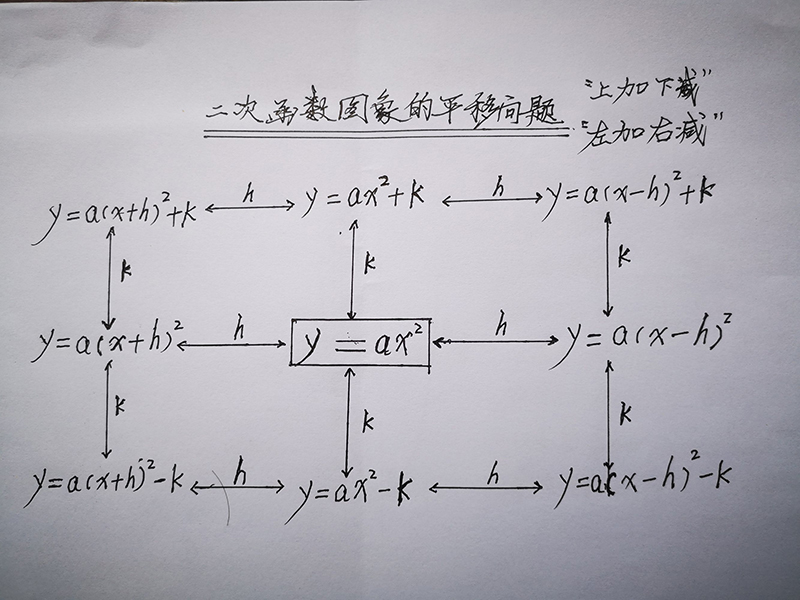 二次函数图象的平移问题
“上加下减”
“左加右减”
y=a(x+h)²+k h y=ax²+k h y=a(x-h)²+k
k k k
y=a(x+h)² h y=ax² h y=a(x-h)²
k k k
y=a(x+h)²-k h y=ax²-k h y=a(x-h)²-k